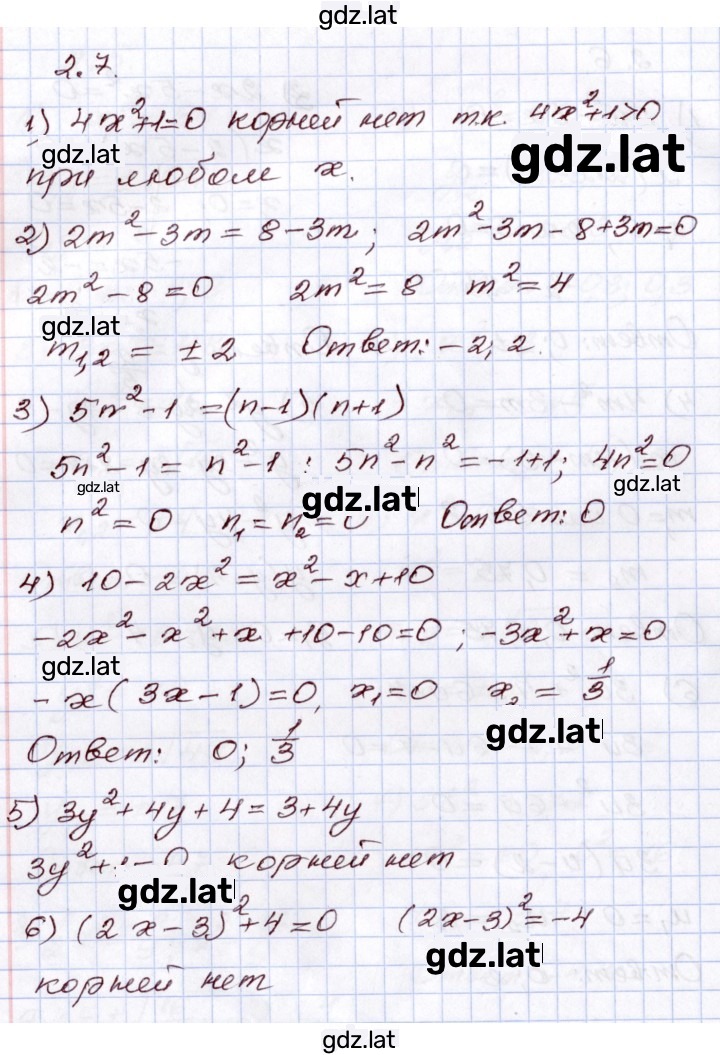 gdz.lat
2.7.
1) 4x²+1=0 корней нет т.к. 4x²+1>0
gdz.lat
gdz.lat
при любом x.
2) 2m²-3m = 8-3m; 2m²-3m-8+3m=0
2m²-8=0 2m²=8 m²=4
gdz.lat
m₁,₂ = ±2 Ответ: -2; 2.
3) 5n²-1=(n-1)(n+1)
5n²-1= n²-1 : 5n²-n²=-1+1; 4n²=0
gdz.lat gdz.lat gdz.lat
n²=0 n₁=n₂=0 Ответ: 0
4) 10-2x²=x²-x+10
-2x²-x²+x +10-10=0 ; -3x²+x=0
gdz.lat
-x(3x-1)=0, x₁=0 x₂ = 1/3
gdz.lat
Ответ: 0; 1/3
5) 3y²+4y+4=3+4y
3y²+ =0 корней нет
gdz.lat
6) (2x-3)²+4=0 (2x-3)²=-4
gdz.lat
корней нет
gdz.lat